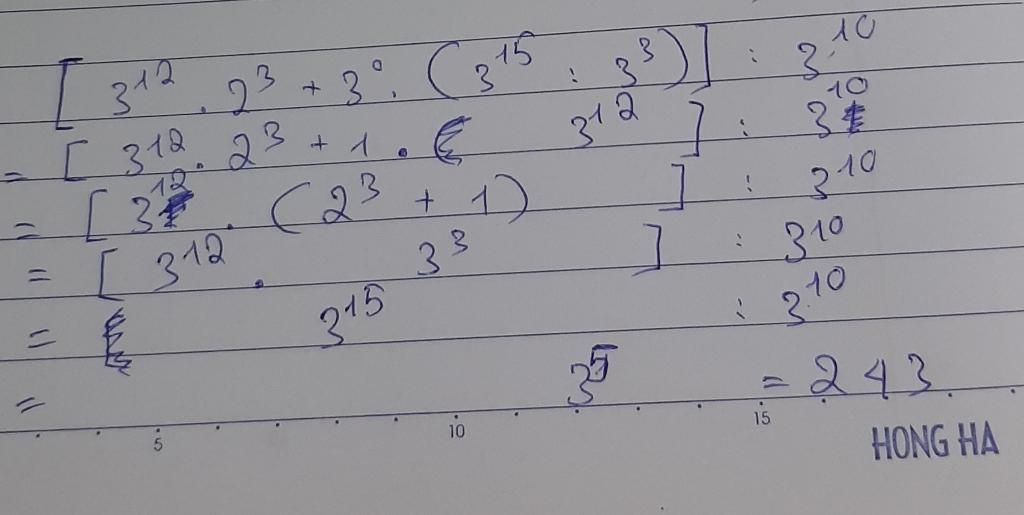 [ 3¹² . 2³ + 3⁰ . ( 3¹⁵ : 3³ ) ] : 3¹⁰
= [ 3¹² . 2³ + 1 . 3¹² ] : 3¹⁰
= [ 3¹² . ( 2³ + 1 ) ] : 3¹⁰
= [ 3¹² . 3³ ] : 3¹⁰
= 3¹⁵ : 3¹⁰
= 3⁵ = 243
5 10 15
HONG HA